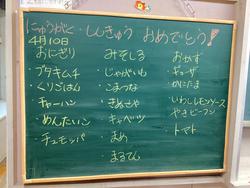 にゅうがく・しんきゅう おめでとう!
4月10日
おにぎり
ブタキムチ
くりごはん
チャーハン
めんたいこ
チュモッパ
みそしる
じゃがいも
こまつな
きぬさや
キャベツ
まめ
まるてん
おかず
ギョーザ
かにたま
いわしレモンソース
やきビーフン
トマト